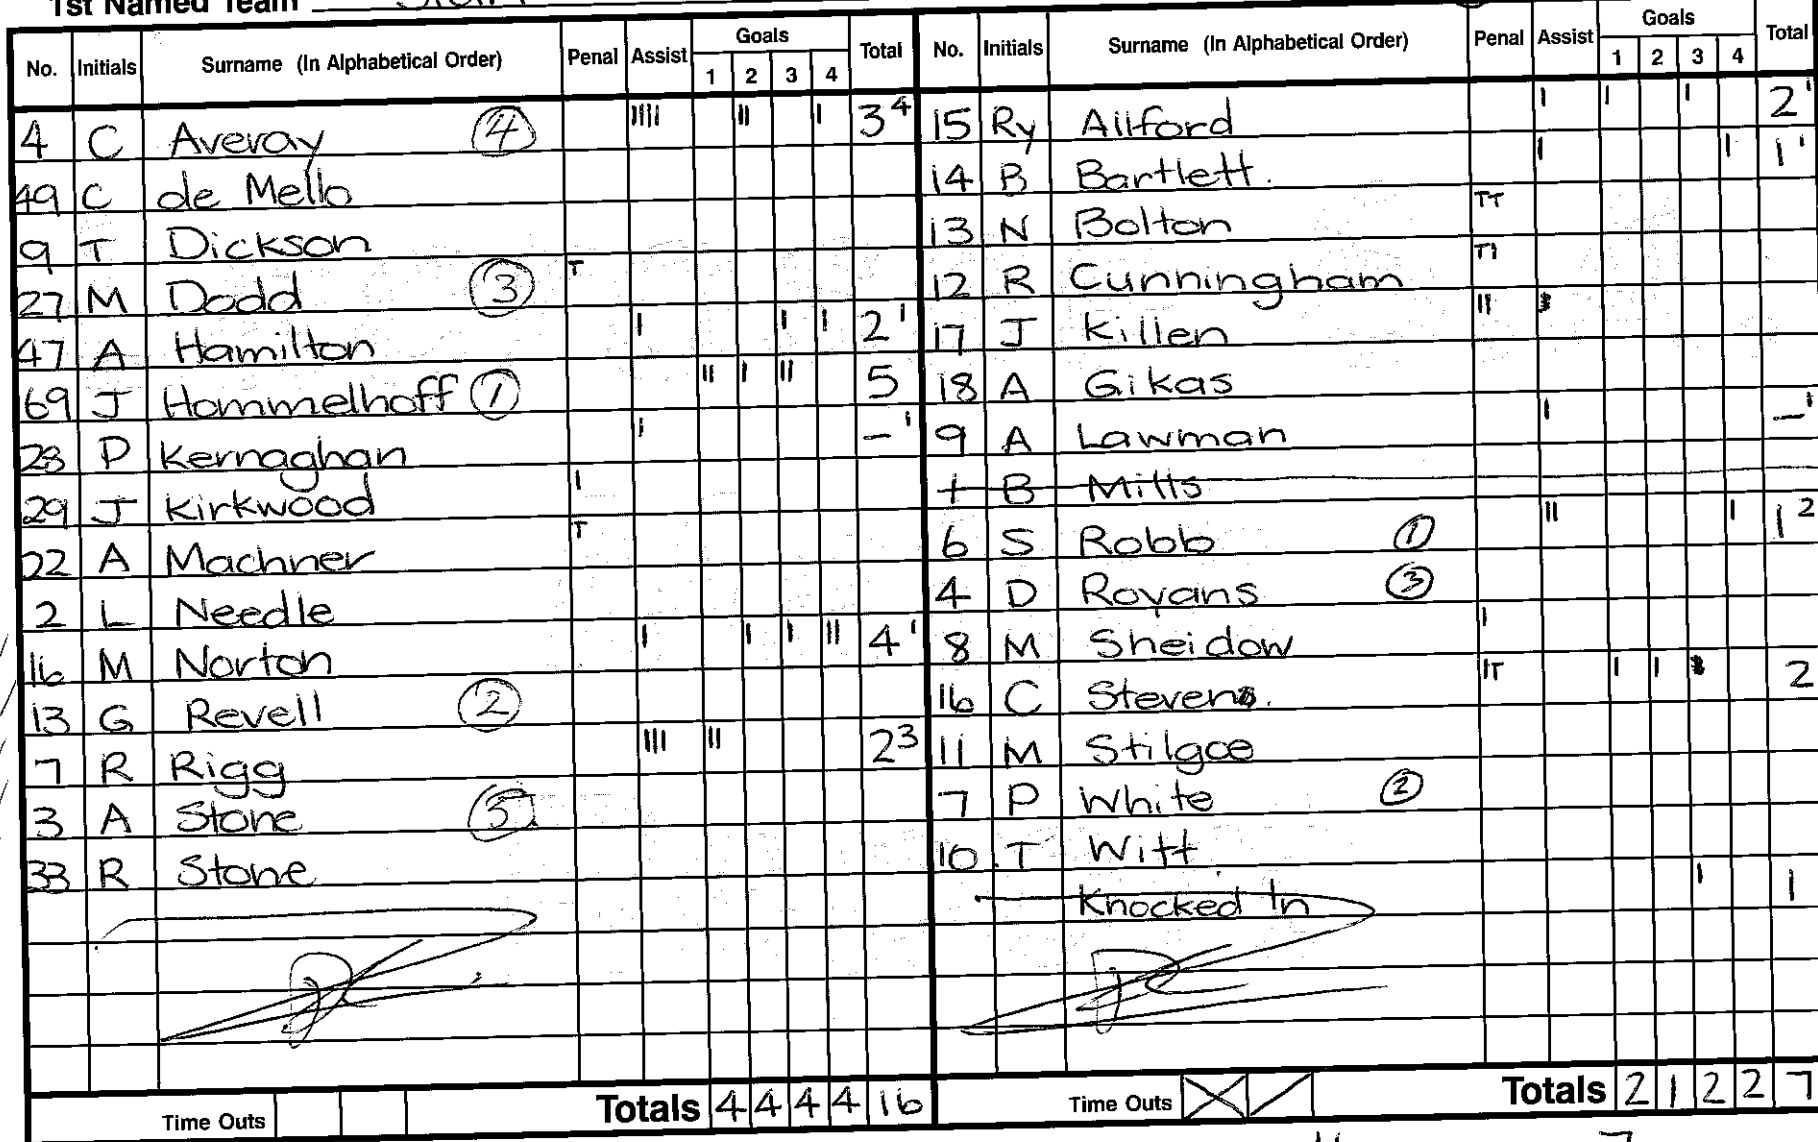 1st Named Team
No. Initials Surname (In Alphabetical Order) Penal Assist Goals 1 2 3 4 Total
4 C Averay 4 IIII II I 3 4
49 C de Mello
9 T Dickson
27 M Dodd 3 T
47 A Hamilton I I I 2 1
69 J Hommelhoff 1 II I II 5
28 P Kernaghan I – 1
29 J Kirkwood I
22 A Machner T
2 L Needle
16 M Norton I I I II 4 1
13 G Revell 2
7 R Rigg III II 2 3
3 A Stone 5
33 R Stone
Time Outs Totals 4 4 4 4 16
No. Initials Surname (In Alphabetical Order) Penal Assist Goals 1 2 3 4 Total
15 Ry Allford I I I 2 1
14 B Bartlett. I I 1 1
13 N Bolton TT
12 R Cunningham TI
17 J Killen II
18 A Gikas
9 A Lawman I – 1
1 B Mills
6 S Robb 1 II I 1 2
4 D Rovans 3
8 M Sheidow I
16 C Stevens. IT I I 2
11 M Stilgoe
7 P White 2
10 T Witt
Knocked In I 1
Time Outs Totals 2 1 2 2 7